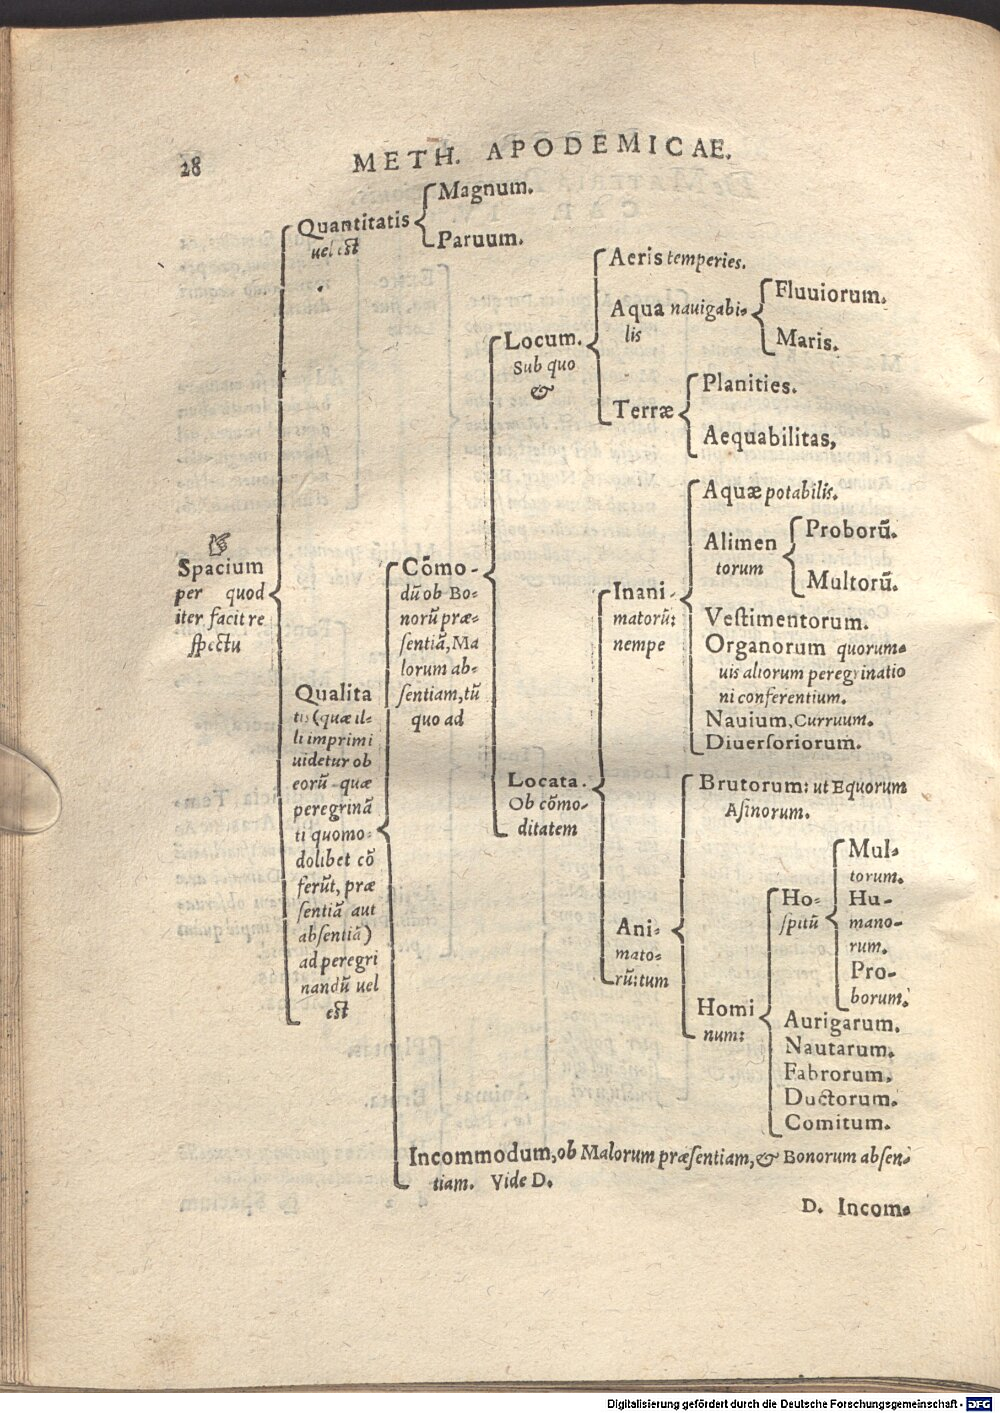 28
METH. APODEMICAE.
☞
Spacium
per quod
iter facit re
spectu
Quantitatis
uel est
Magnum.
Paruum.
Qualita
tis (quæ il-
li imprimi
uidetur ob
eorũ quæ
peregrinã
ti quomo-
dolibet cõ
ferũt, præ
sentiã aut
absentiã)
ad peregri
nandũ uel
est
Cõmo-
dũ ob Bo-
norũ præ-
sentiã, Ma
lorum ab-
sentiam, tũ
quo ad
Locum.
Sub quo
&
Aeris temperies.
Aqua nauigabi-
lis
Fluuiorum.
Maris.
Terræ
Planities.
Aequabilitas,
Locata.
Ob cõmo-
ditatem
Inani-
matorũ:
nempe
Aquæ potabilis.
Alimen
torum
Proborũ.
Multorũ.
Vestimentorum.
Organorum quorum-
uis aliorum peregrinatio
ni conferentium.
Nauium, Curruum.
Diuersoriorum.
Ani-
mato-
rũ: tum
Brutorum: ut Equorum
Asinorum.
Homi
num:
Ho-
spitũ
Mul-
torum.
Hu-
mano-
rum.
Pro-
borum.
Aurigarum.
Nautarum.
Fabrorum.
Ductorum.
Comitum.
Incommodum, ob Malorum præsentiam, & Bonorum absen-
tiam. Vide D.
D. Incom-
Digitalisierung gefördert durch die Deutsche Forschungsgemeinschaft - DFG